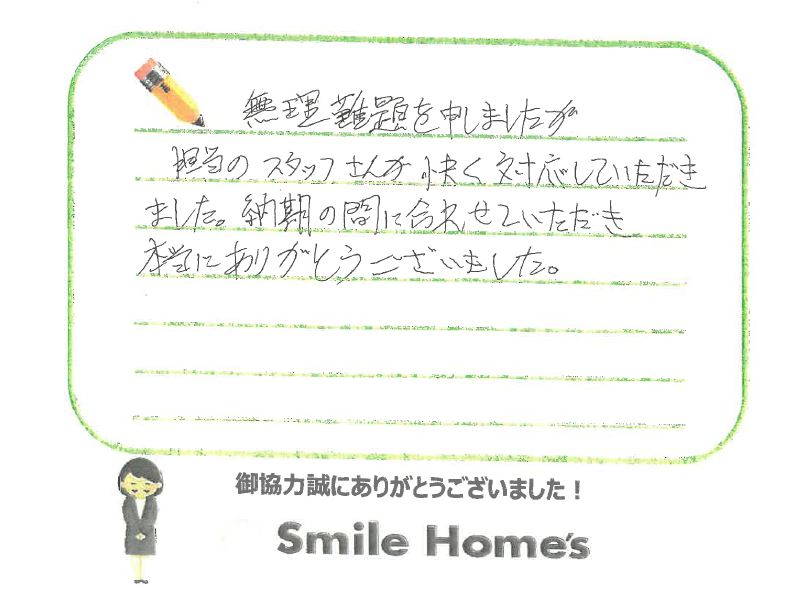 無理難題を申しましたが
担当のスタッフさんが快く対応していただき
ました。納期の間に合わせていただき
本当にありがとうございました。
御協力誠にありがとうございました！
Smile Home's